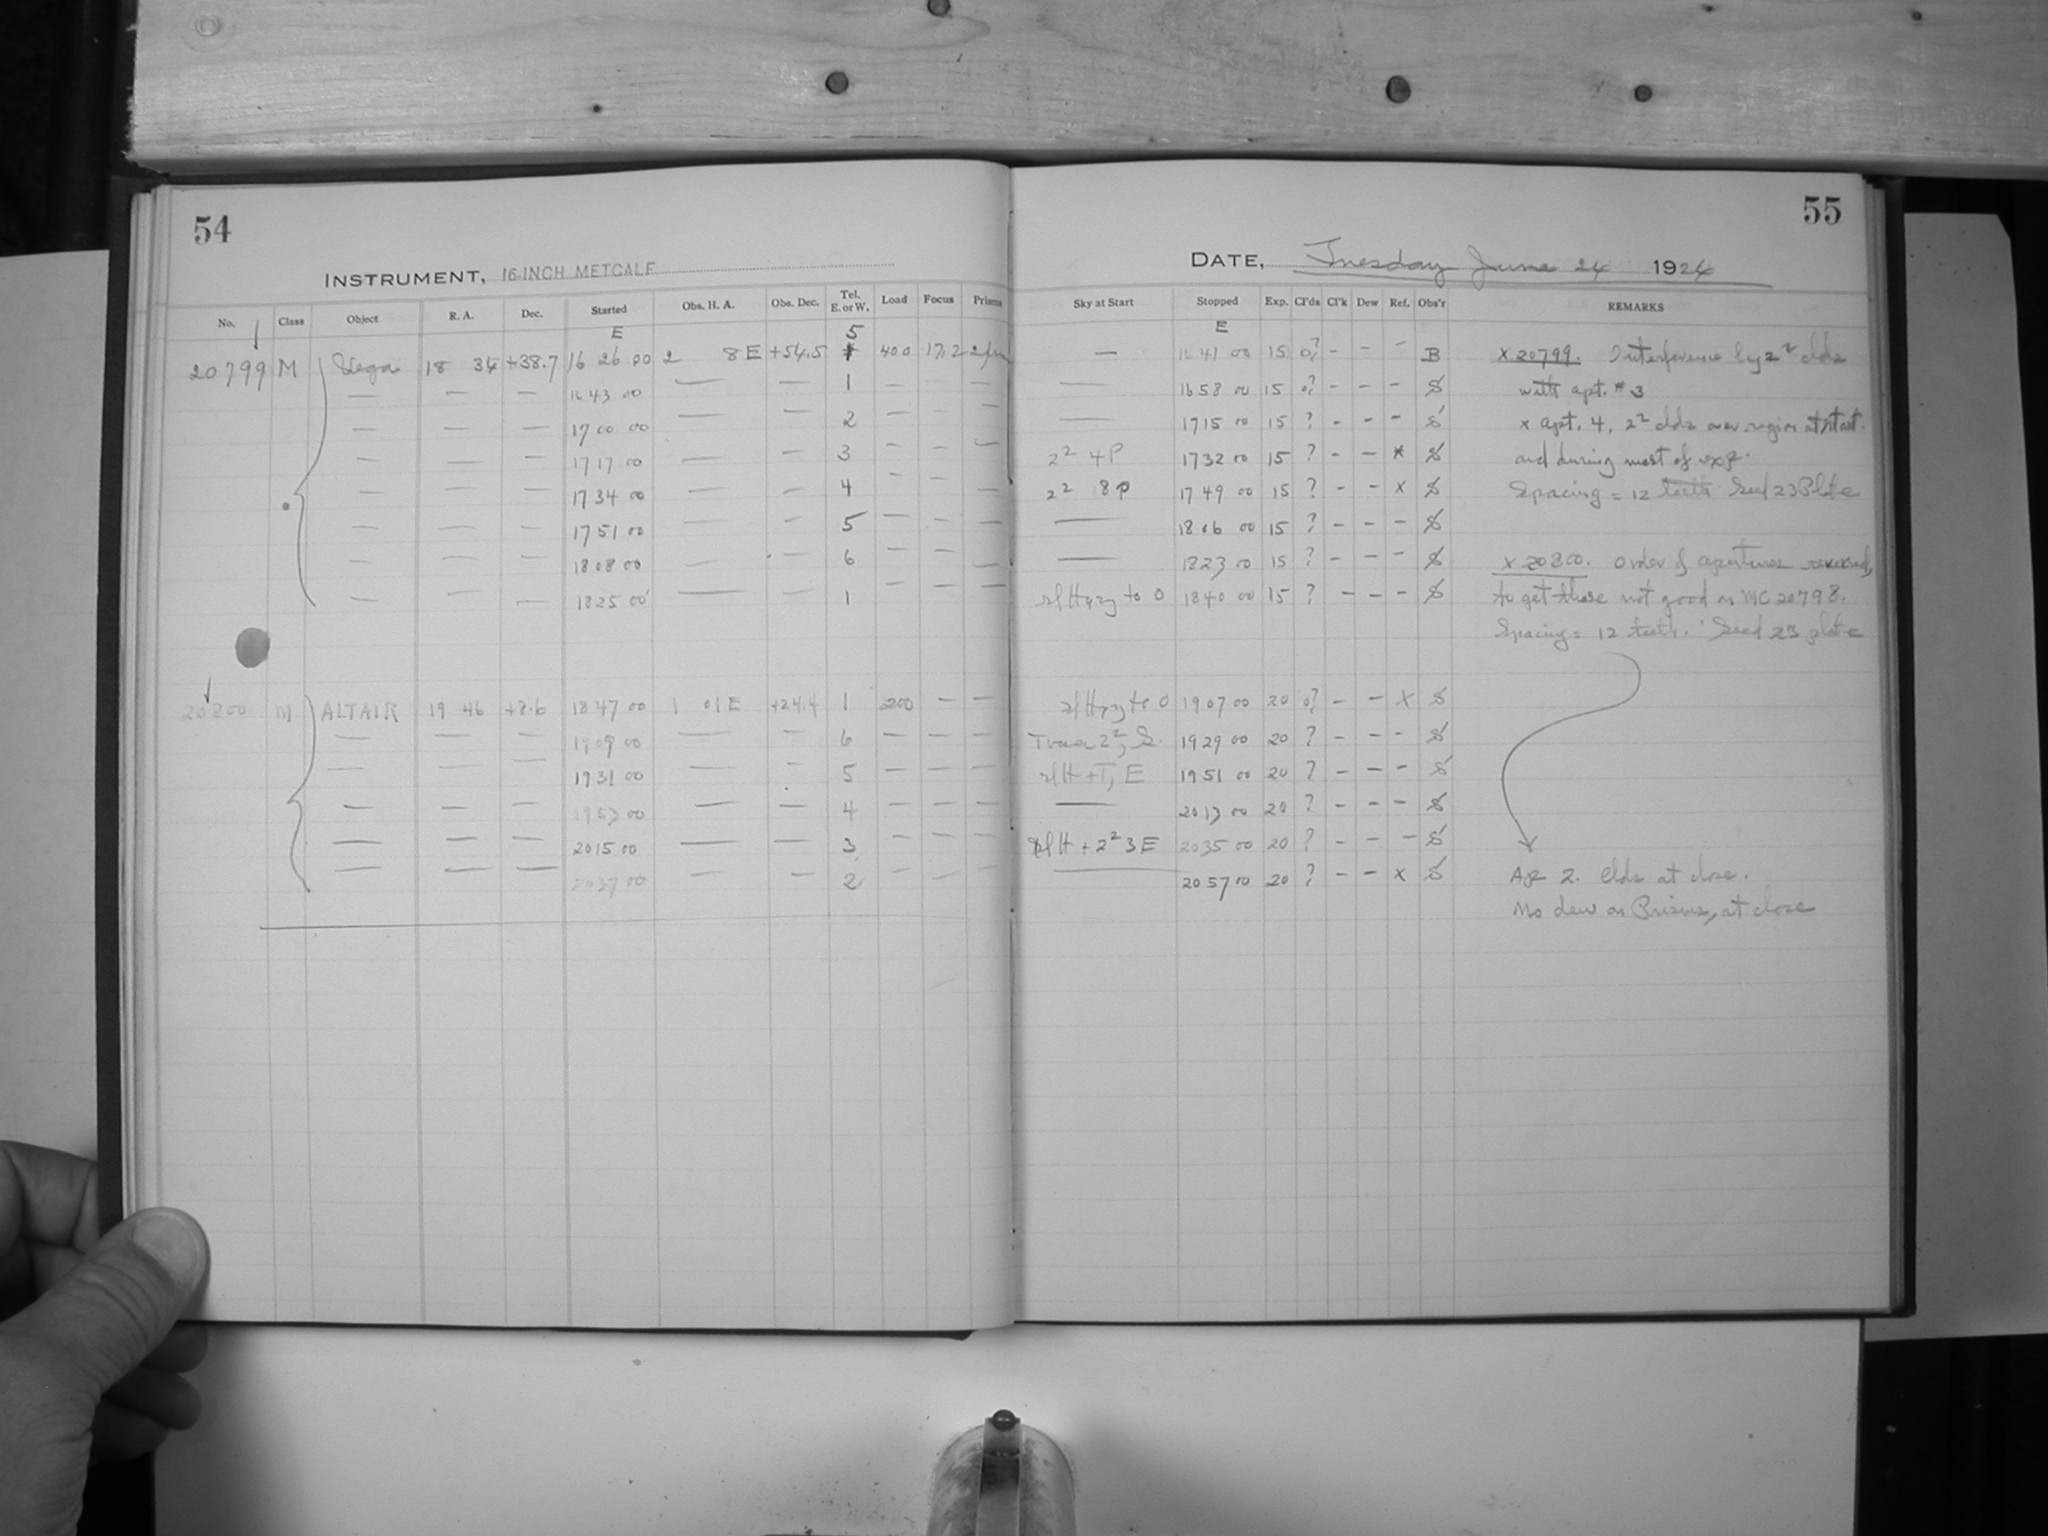 54
55
INSTRUMENT, 16-INCH METCALF
DATE, Tuesday June 24 1924
No. Class Object R. A. Dec. Started Obs. H. A. Obs. Dec. Tel. E. or W. Load Focus Prisms Sky at Start Stopped Exp. Cl'ds Cl'k Dew Ref. Obs'r REMARKS
E 5 E
20799 M Vega 18 34 +38.7 16 26 00 2 8 E +54.5 400 17.2 — 16 41 00 15 0? - - - B x 20799. Interference by 2² clds
— — — 16 43 00 — — 1 — — — — 16 58 00 15 0? - - - with apt. #3
— — — 17 00 00 — — 2 — — — — 17 15 00 15 ? - - - x apt. 4, 2² clds over region at start.
— — — 17 17 00 — — 3 — — — 2² 4P 17 32 00 15 ? - - * and during most of exp.
— — — 17 34 00 — — 4 — — — 2² 8P 17 49 00 15 ? - - x Spacing = 12 teeth Seed 23 Plate
— — — 17 51 00 — — 5 — — — — 18 06 00 15 ? - - -
— — — 18 08 00 — — 6 — — — — 18 23 00 15 ? - - - x 20800. Order of apertures reversed,
— — 18 25 00 — — 1 — — — sl Hazy to 0 18 40 00 15 ? - - - to get those not good on MC 20798.
Spacing = 12 teeth. Seed 23 plate
20800 M ALTAIR 19 46 +8.6 18 47 00 1 01 E +24.4 1 200 — — sl Hazy to 0 19 07 00 20 0? - - x
— — — 19 09 00 — — 6 — — — 2², S. 19 29 00 20 ? - - -
— — — 19 31 00 — — 5 — — — sl H + T, E 19 51 00 20 ? - - -
— — — 19 53 00 — — 4 — — — — 20 13 00 20 ? - - -
— — — 20 15 00 — — 3 — — — sl H + 2² 3 E 20 35 00 20 ? - - -
— — — 20 37 00 — — 2 — — — — 20 57 00 20 ? - - x Ap 2. Clds at close.
No dew on Prisms, at close